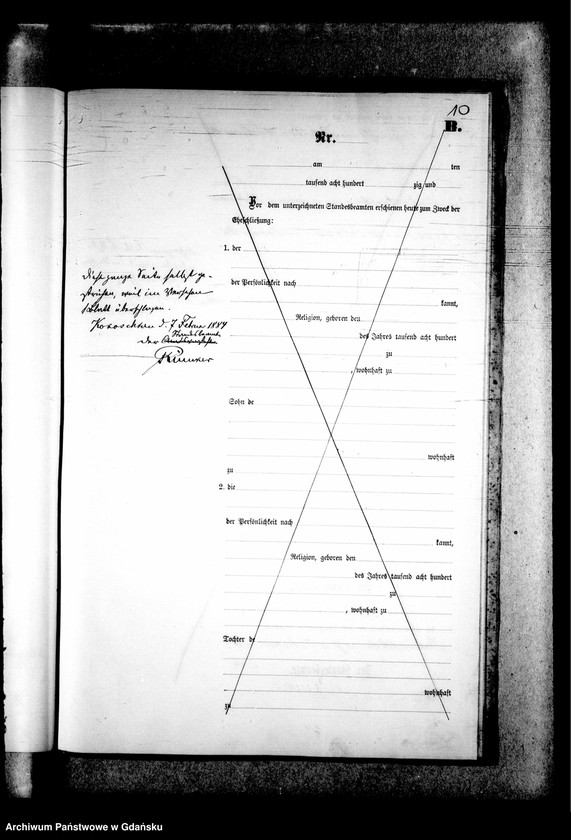 10
B.
Nr.
am ten
tausend acht hundert zig und
Vor dem unterzeichneten Standesbeamten erschienen heute zum Zweck der
Eheschließung:
1. der
der Persönlichkeit nach
kannt,
Religion, geboren den
des Jahres tausend acht hundert
zu
, wohnhaft zu
Sohn de
wohnhaft
zu
2. die
der Persönlichkeit nach
kannt,
Religion, geboren den
des Jahres tausend acht hundert
zu
, wohnhaft zu
Tochter de
wohnhaft
zu
Diese ganze Seite selbst ge-
strichen, weil im Versehen
Blatt überschlagen.
d. 7 Februar
Standesbeamte
Der
Archiwum Państwowe w Gdańsku